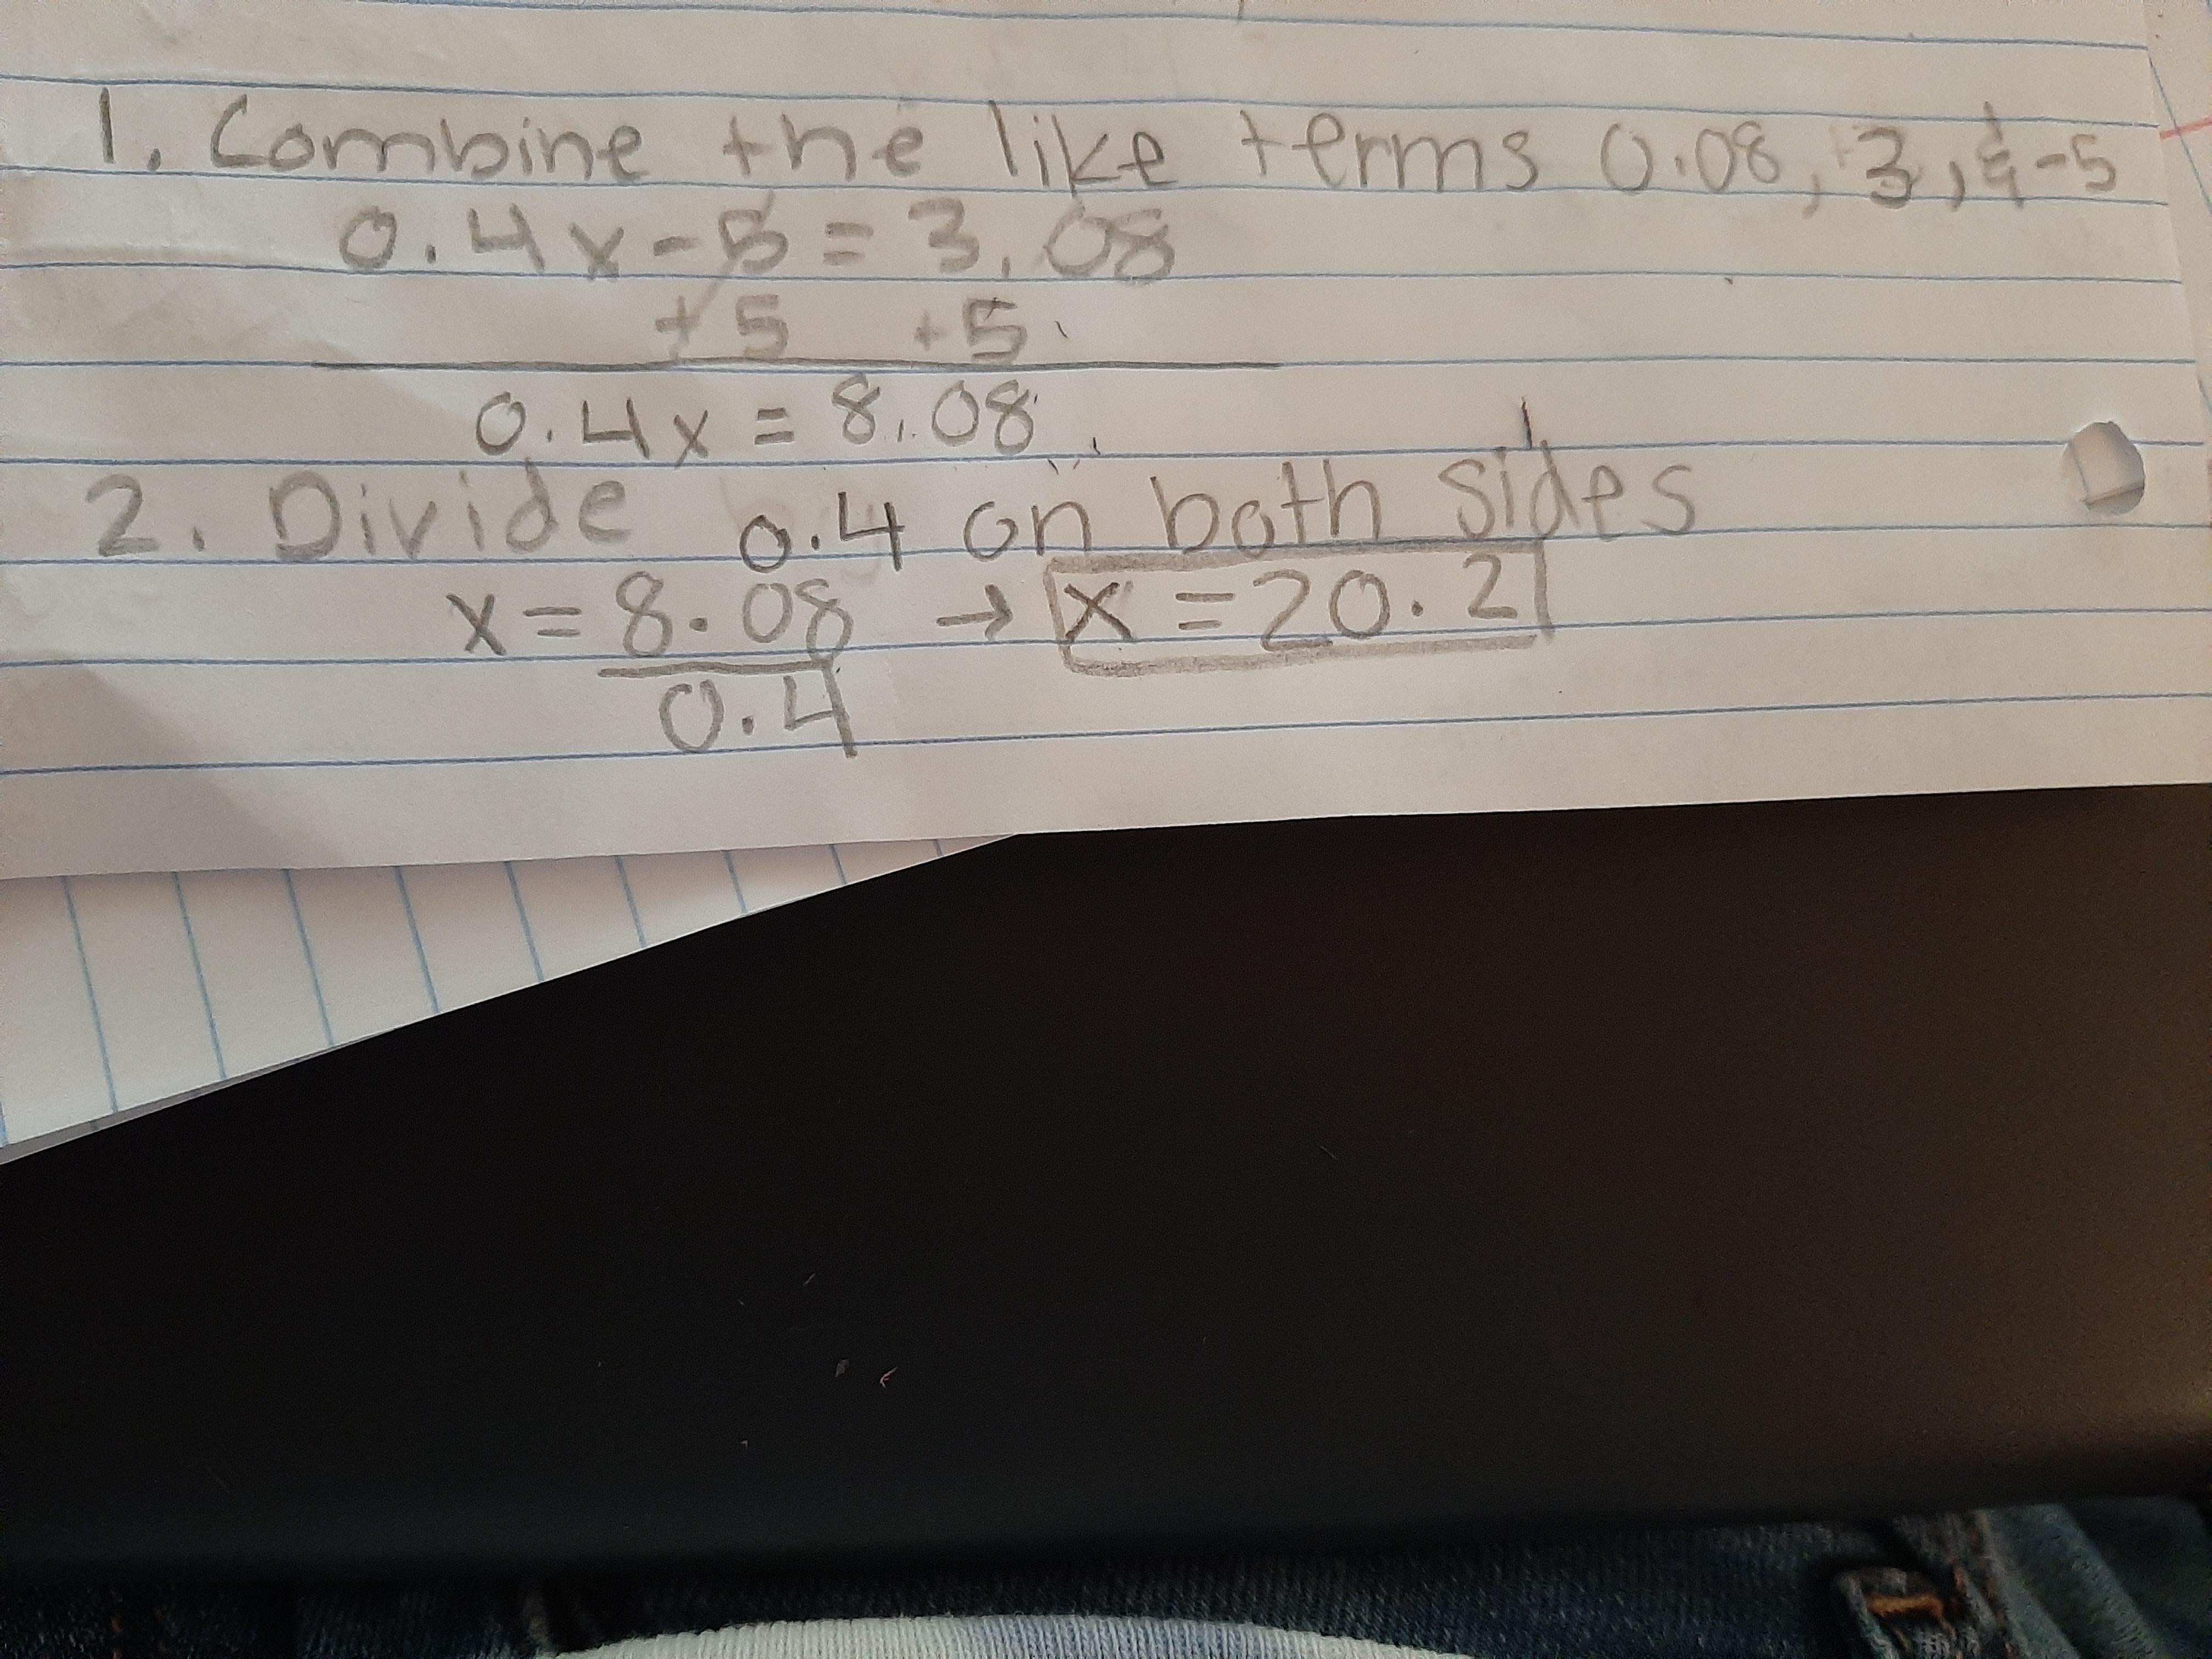 1. Combine the like terms 0.08, 3, & -5
0.4x - 5 = 3.08
+5 +5
0.4x = 8.08
2. Divide 0.4 on both sides
x = 8.08 → x = 20.2
0.4